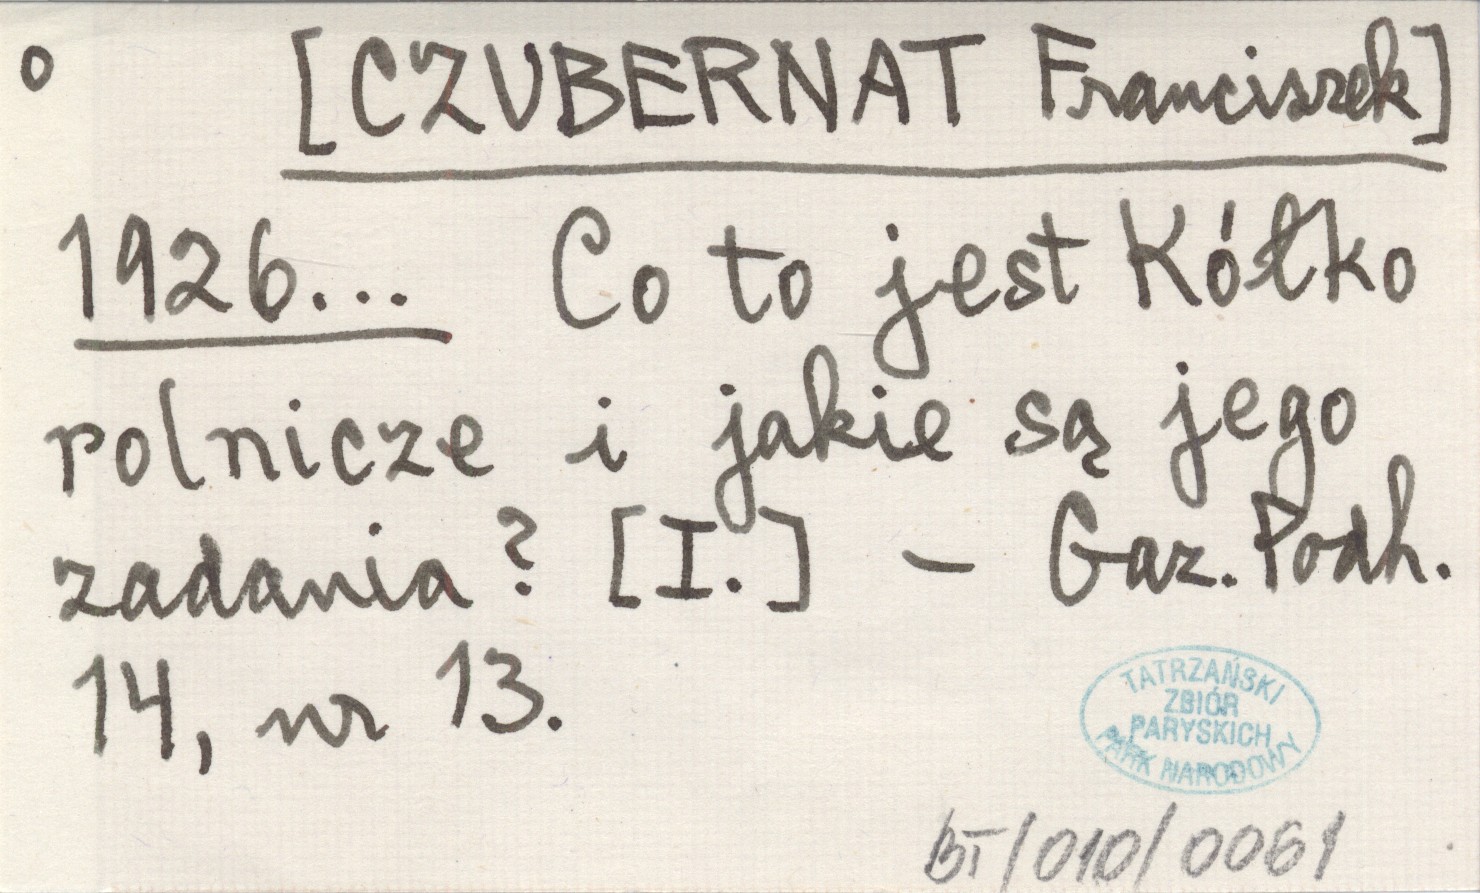 o [CZUBERNAT Franciszek]
1926... Co to jest Kółko
rolnicze i jakie są jego
zadania? [I.] – Gaz. Podh.
14, nr 13.
TATRZAŃSKI
ZBIÓR
PARYSKICH
PARK NARODOWY
BT/010/0061